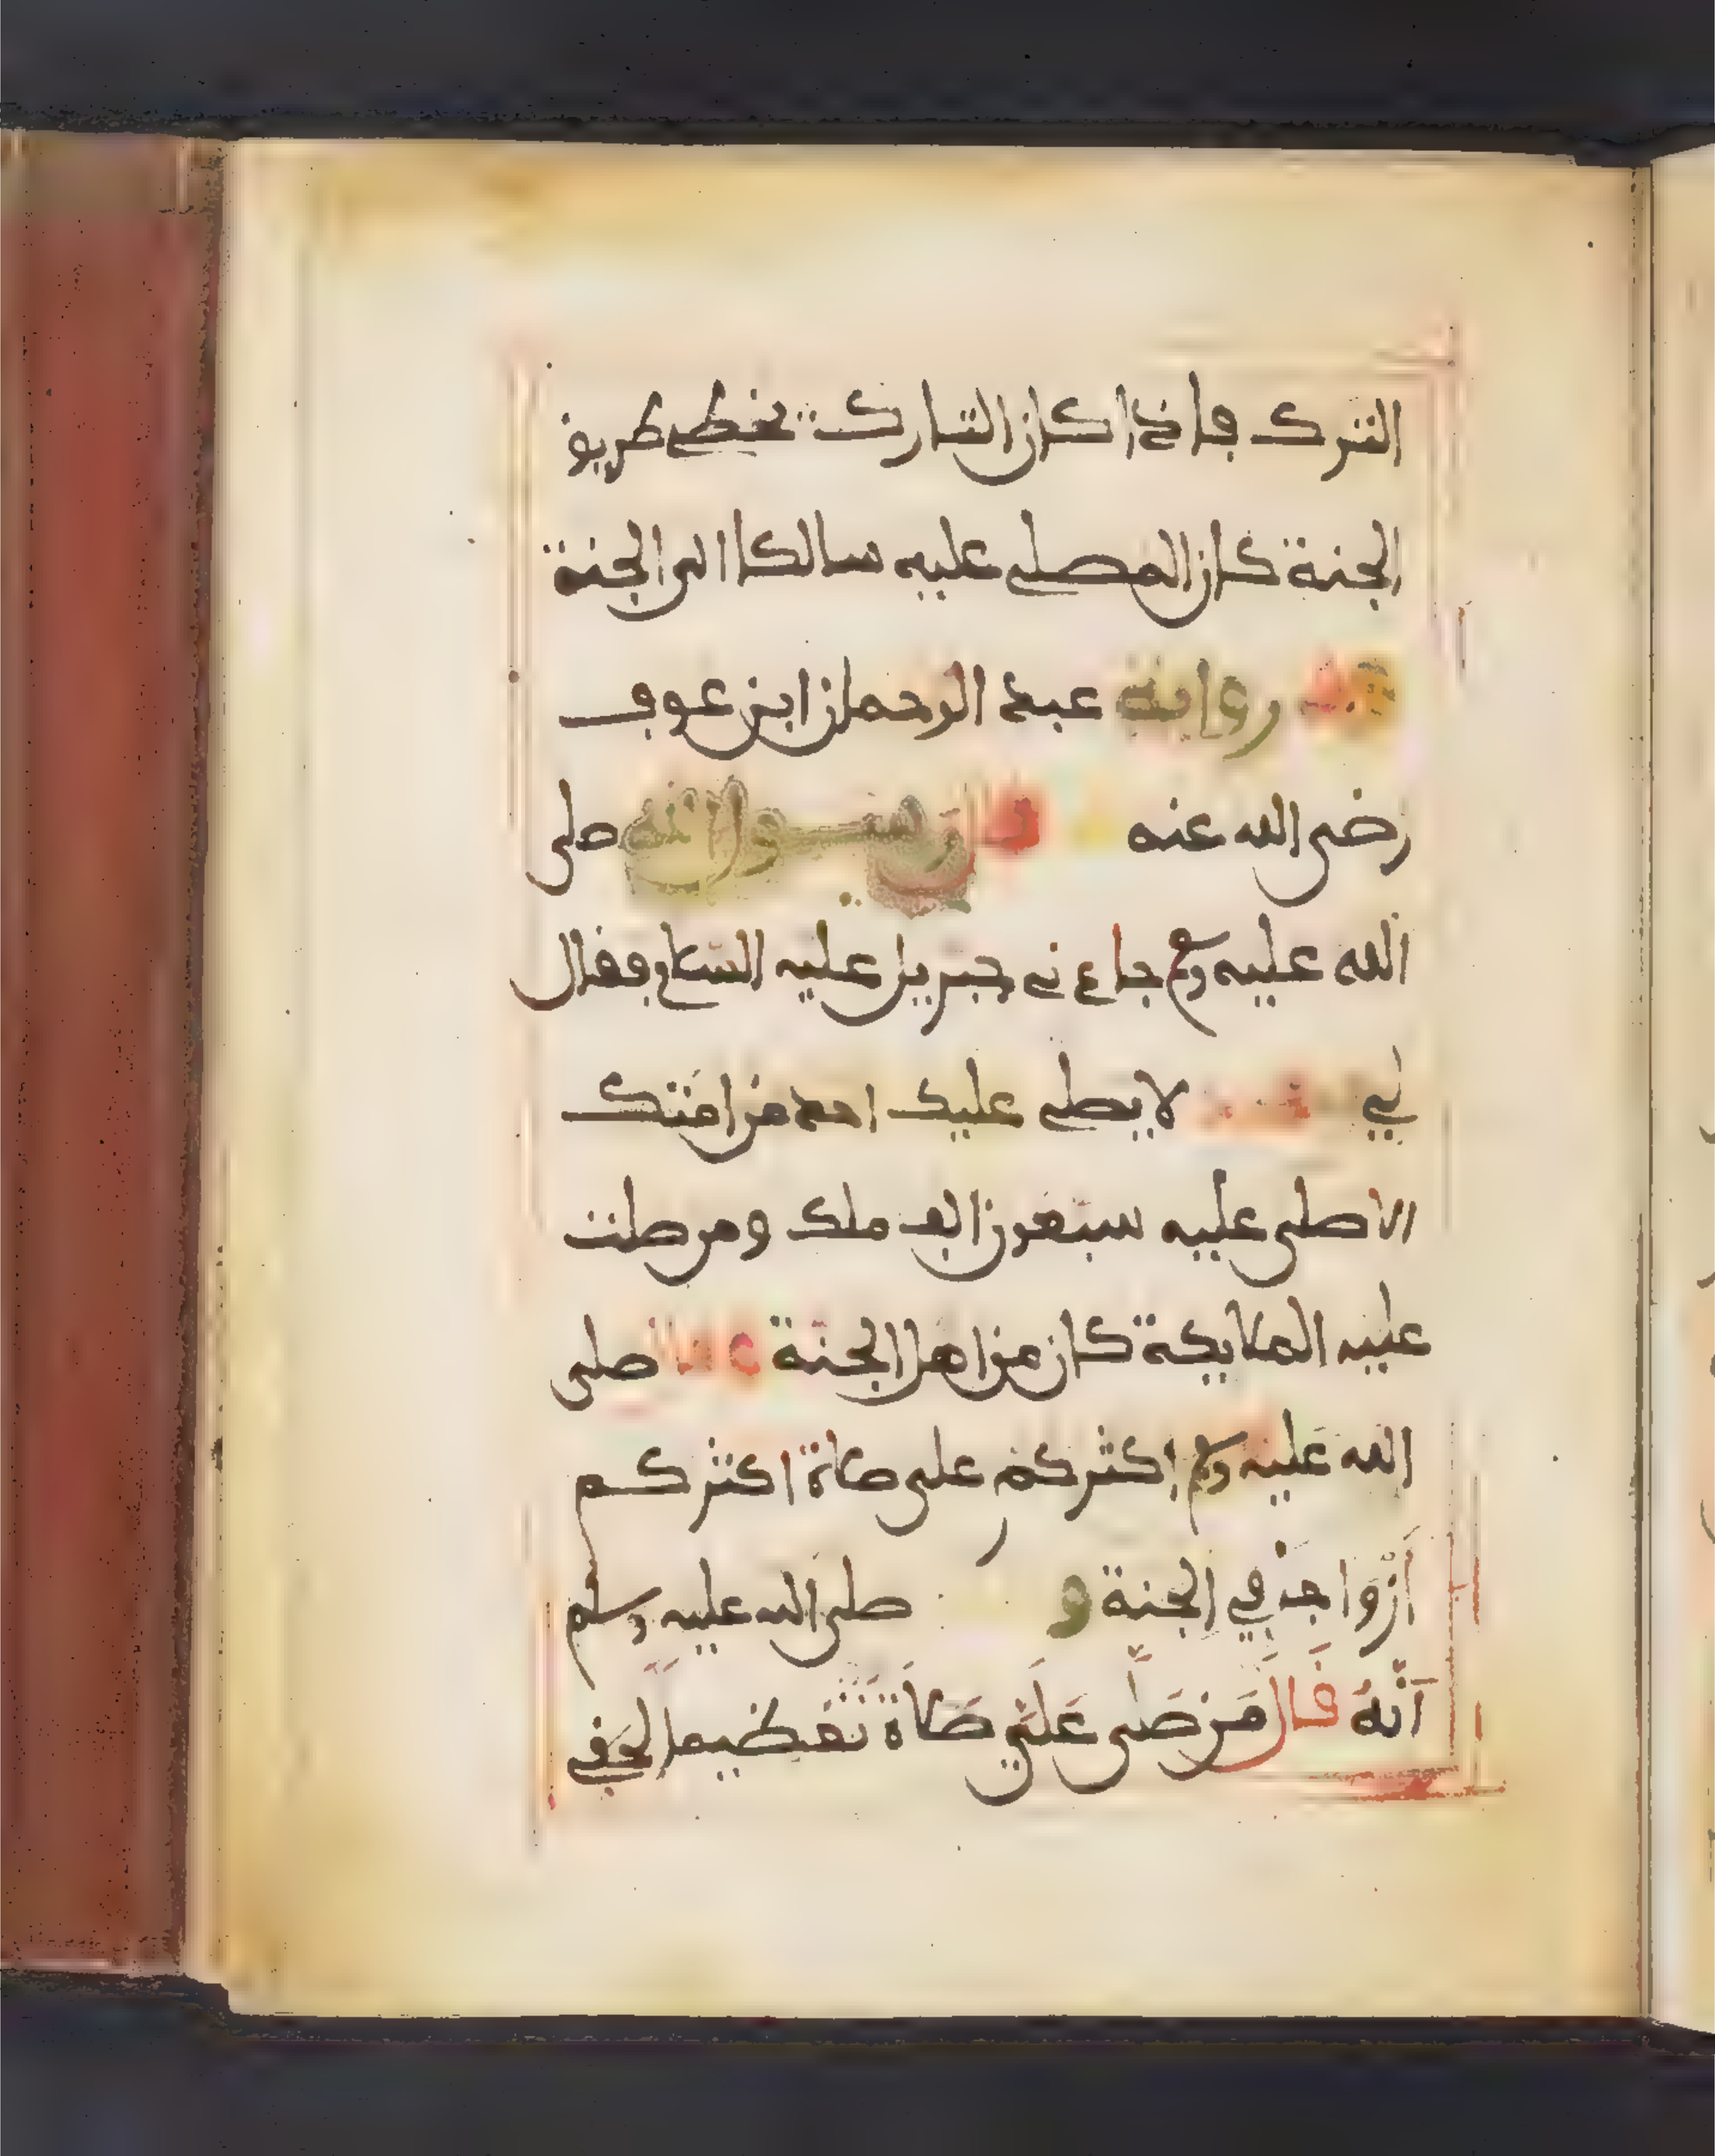 الترك فاذا كان التارك يخطى طريق
الجنة كان المصلى عليه سالكا الى الجنة
رواية عبد الرحمان ابن عوف
رضى الله عنه قال رسول الله صلى
الله عليه وسلم جاءنى جبريل عليه السلام فقال
لي لا يصلى عليك احد من امتك
الا صلى عليه سبعون الف ملك ومن صلت
عليه الملايكة كان من اهل الجنة صلى
الله عليه وسلم اكثركم على صلاة اكثركم
أزواجا في الجنة و صلى الله عليه وسلم
أنه قال من صلى علي صلاة تعظيما لحقي